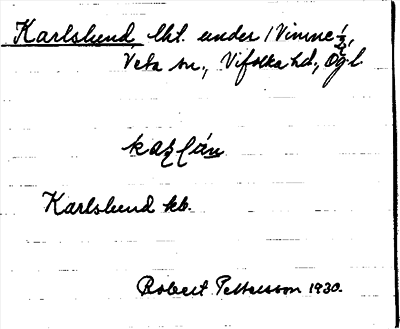 Karlslund, lht. under 1 Vinne ¼,
Veta sn., Vifolka hd., Ög.l.
Karlslund kb.
Robert Pettersson 1930.